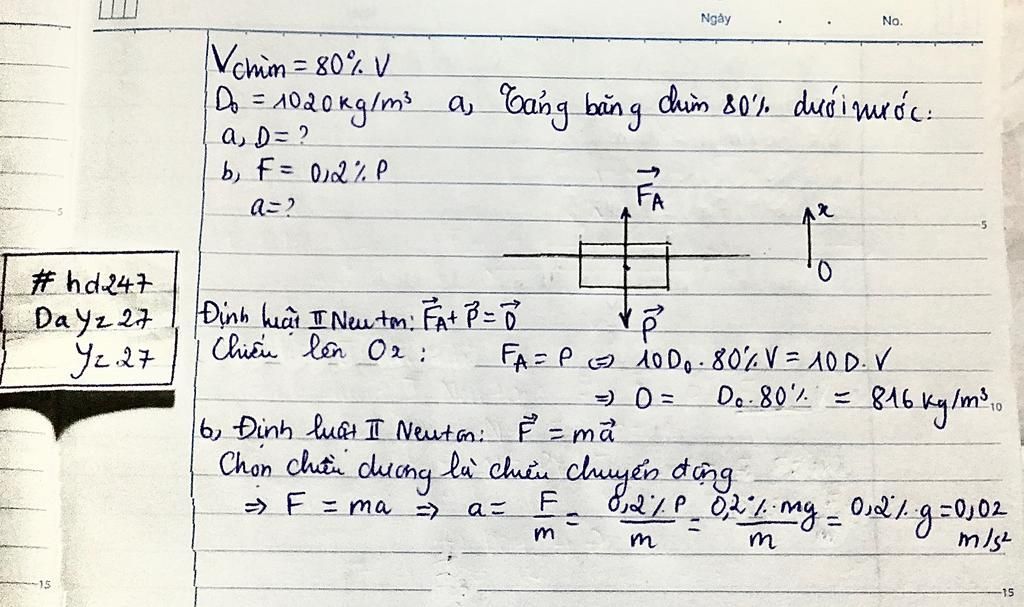 Ngày . . No.
Vchìm = 80% V
D₀ = 1020 kg/m³ a, Tảng băng chìm 80% dưới nước:
a, D = ?
b, F = 0,2% P
a = ?
F⃗A
x
O
P⃗
5
5
# hd247
DaYz27
Yz.27
Định luật II Neutơn: F⃗A + P⃗ = 0⃗
Chiếu lên Ox: FA = P ⇔ 10D₀.80%V = 10D.V
⇒ D = D₀.80% = 816 kg/m³
10
b, Định luật II Neutơn: F⃗ = ma⃗
Chọn chiều dương là chiều chuyển động
⇒ F = ma ⇒ a = F/m = 0,2%P/m = 0,2%.mg/m = 0,2%.g = 0,02
m/s²
15
15